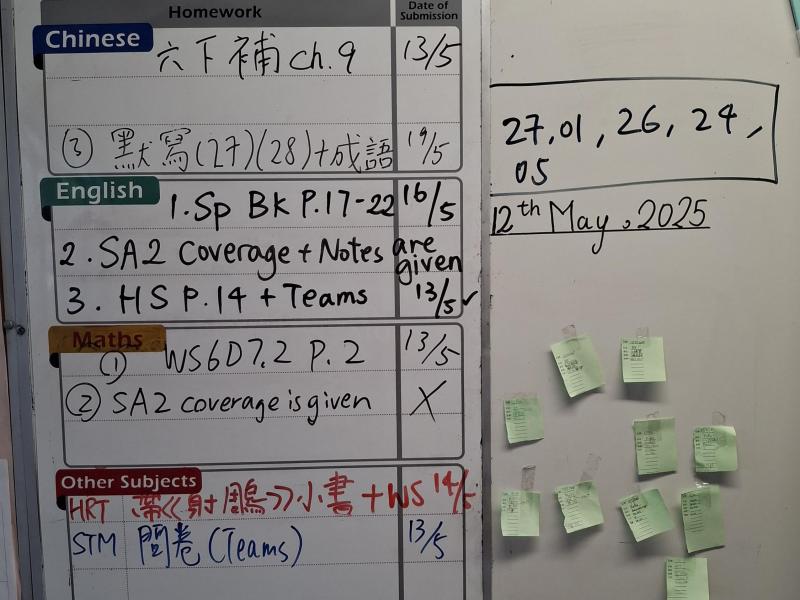 Homework
Date of Submission
Chinese
六下補 ch.9 13/5
③ 默寫(27)(28)+成語 19/5
English
1. Sp Bk P.17-22 16/5
2. SA2 Coverage + Notes are given
3. HS P.14 + Teams 13/5 ✓
Maths
① WS6D7.2 P.2 13/5
② SA2 coverage is given X
Other Subjects
HRT 帶《射鵰》小書 + WS 14/5
STM 問卷 (Teams) 13/5
27, 01, 26, 24,
05
12th May, 2025